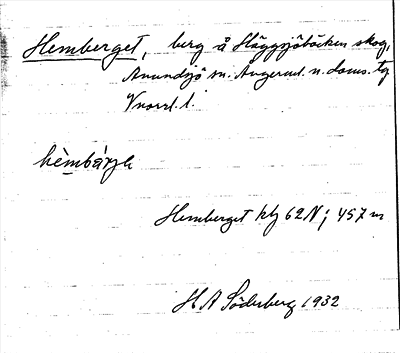 Hemberget, berg å Häggsjöbäcken skog,
Anundsjö sn. Ångerml. n. doms. tg
Vnorrl. l.
hèmbárje
Hemberget kbl 62N; 457 m
H A Söderberg 1932